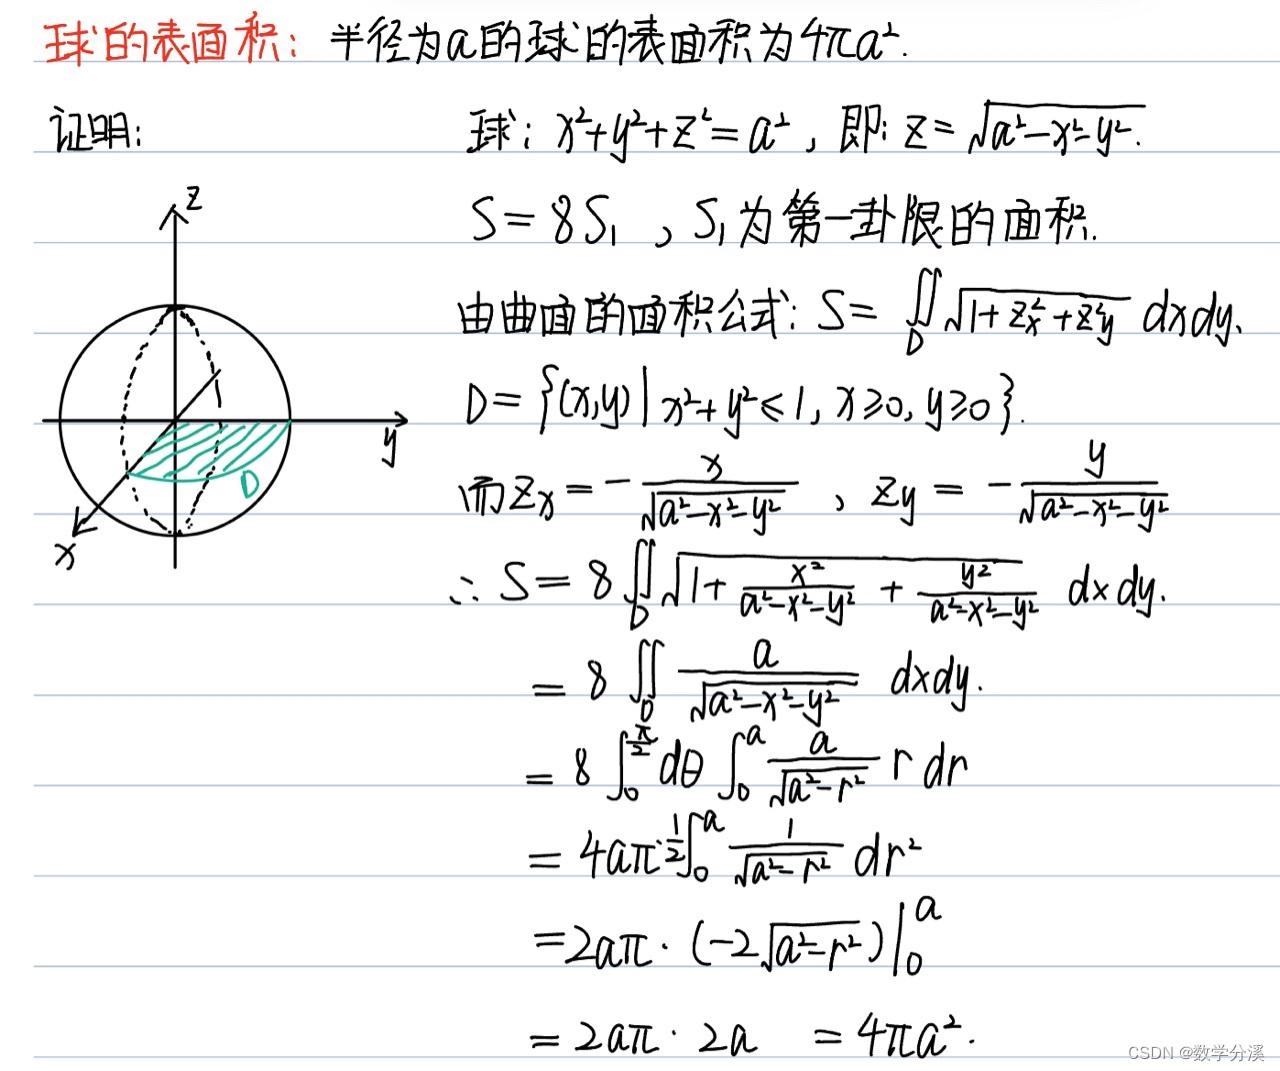 球的表面积: 半径为a的球的表面积为4πa².
证明:
球: x²+y²+z²=a², 即: z=√(a²-x²-y²).
S=8S₁, S₁为第一卦限的面积.
由曲面的面积公式: S=∬_D √(1+z_x²+z_y²) dxdy.
D={(x,y)|x²+y²≤1, x≥0, y≥0}.
而z_x=-x/√(a²-x²-y²), z_y=-y/√(a²-x²-y²)
∴ S=8∬_D √(1+x²/(a²-x²-y²)+y²/(a²-x²-y²)) dxdy.
=8∬_D a/√(a²-x²-y²) dxdy.
=8∫₀^(π/2) dθ ∫₀^a a/√(a²-r²) r dr
=4aπ·½∫₀^a 1/√(a²-r²) dr²
=2aπ·(-2√(a²-r²))|₀^a
=2aπ·2a =4πa².
z
y
D
x
CSDN @数学分溪